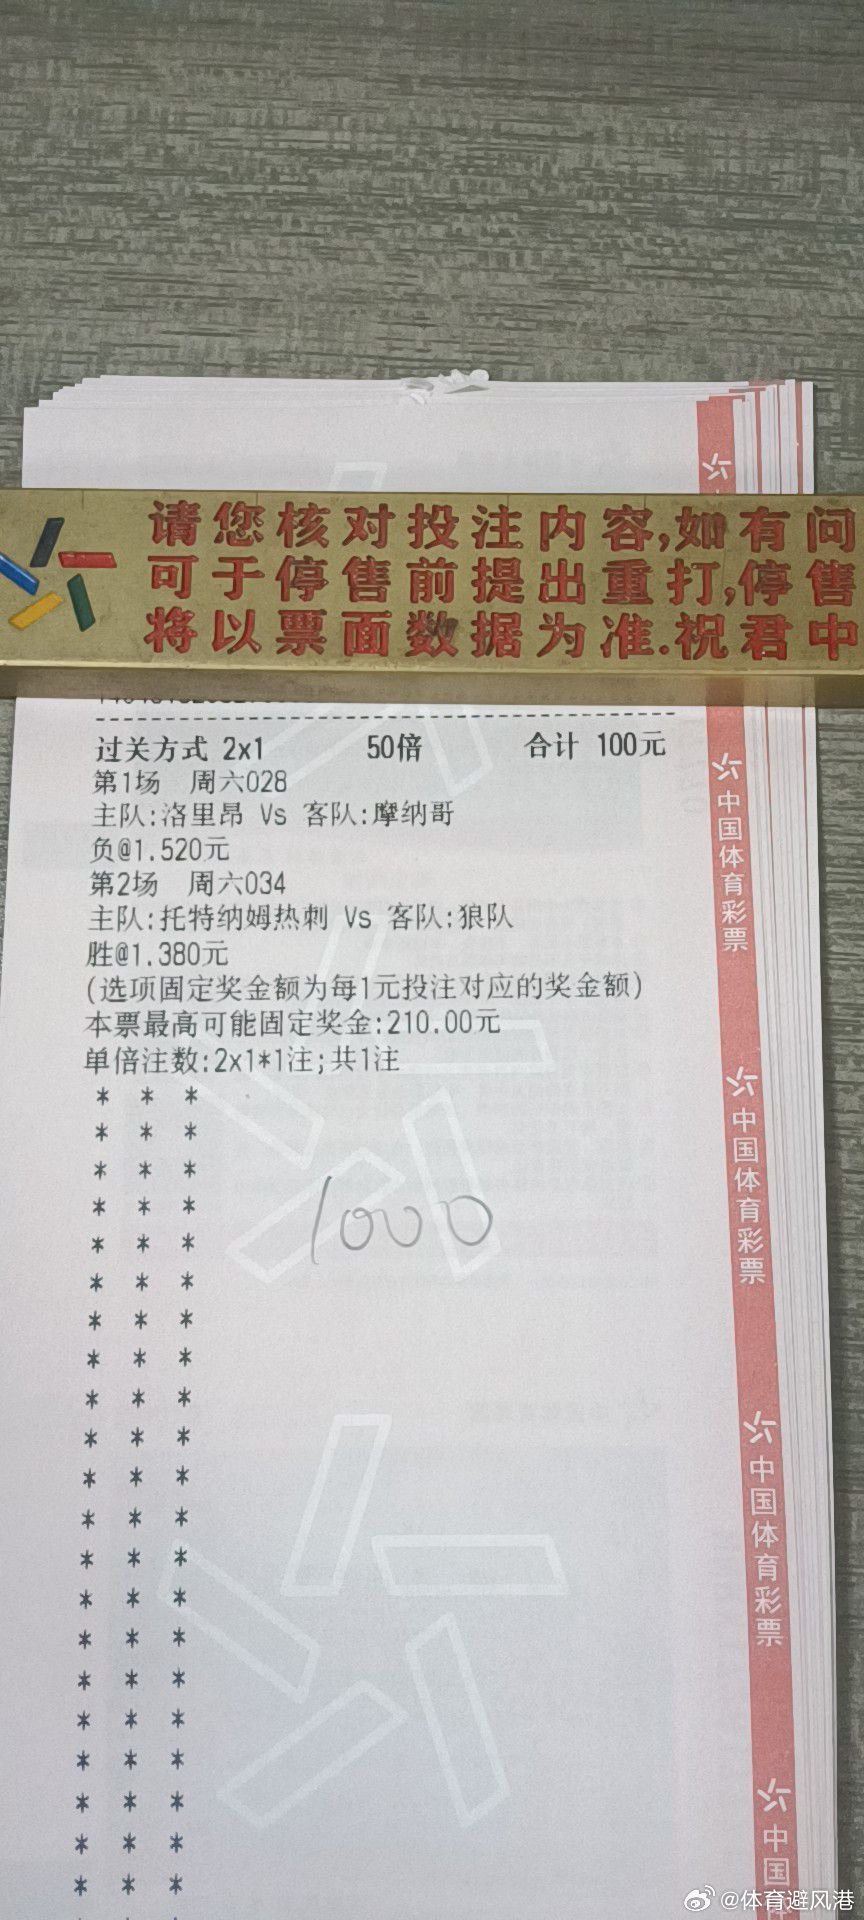 请您核对投注内容,如有问
可于停售前提出重打,停售
将以票面数据为准.祝君中
过关方式 2x1 50倍 合计 100元
第1场 周六028
主队:洛里昂 Vs 客队:摩纳哥
负@1.520元
第2场 周六034
主队:托特纳姆热刺 Vs 客队:狼队
胜@1.380元
(选项固定奖金额为每1元投注对应的奖金额)
本票最高可能固定奖金:210.00元
单倍注数:2x1*1注;共1注
* * *
* * *
* * *
* * *
* * *
* * *
* * *
* * *
* * *
* * *
* * *
* * *
* * *
* * *
* * *
* * *
* * *
* * *
* * *
* * *
* * *
* * *
1000
中国体育彩票
中国体育彩票
中国体育彩票
中国
@体育避风港